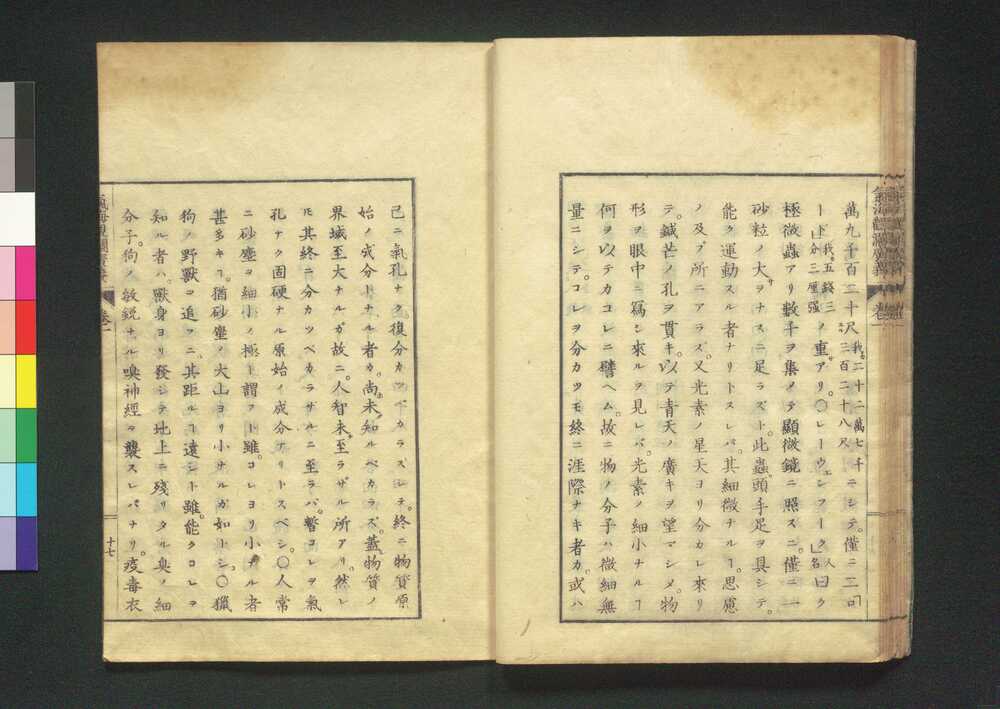 萬九千百二十尺我二十二萬七千三百二十八尺ニシテ。僅ニ二「ロ
ード」我五錢三分三厘強ノ重アリ。〇レーウェンフーク人名曰ク
極微蟲アリ數千ヲ集メテ顯微鏡ニ照スニ。僅ニ一
砂粒ノ大サヲナスニ足ラズト。此蟲。頭手足ヲ具シテ。
能ク運動スル者ナリトスレバ。其細微ナルヿ。思慮
ノ及ブ所ニアラズ。又光素ノ星天ヨリ分カレ來リ
テ。鍼芒ノ孔ヲ貫キ。以テ青天ノ廣キヲ望マシメ。物
形ヲ眼中ニ寫シ來ルヲ見レバ。光素ノ細小ナルヿ
何ヲ以テカコレニ譬ヘム。故ニ物ノ分子ハ微細無
量ニシテ。コレヲ分カツモ終ニ涯際ナキ者カ。或ハ
己ニ氣孔ナク。復分カツベカラズシテ。終ニ物質原
始ノ成分トナル者カ。尚未知ルベカラズ。蓋物質ノ
界域至大ナルガ故ニ。人智未至ラザル所アリ。然レ
𪜈其終ニ分カツベカラザルニ至ラバ。暫コレヲ氣
孔ナク固硬ナル原始ノ成分ナリトスベシ。〇人常
ニ砂塵ヲ細小ノ極ト謂フト雖。コレヨリ小ナル者
甚多キヿ。猶砂塵ノ大山ヨリ小ナルガ如シ。〇獵
狗ノ野獸ヲ追フニ。其距ルヿ遠シト雖。能クコレヲ
知ル者ハ。獸身ヨリ發シテ地上ニ殘リタル臭ノ細
分子。狗ノ敏鋭ナル嗅神經ヲ襲スレバナリ。疫毒衣
十七